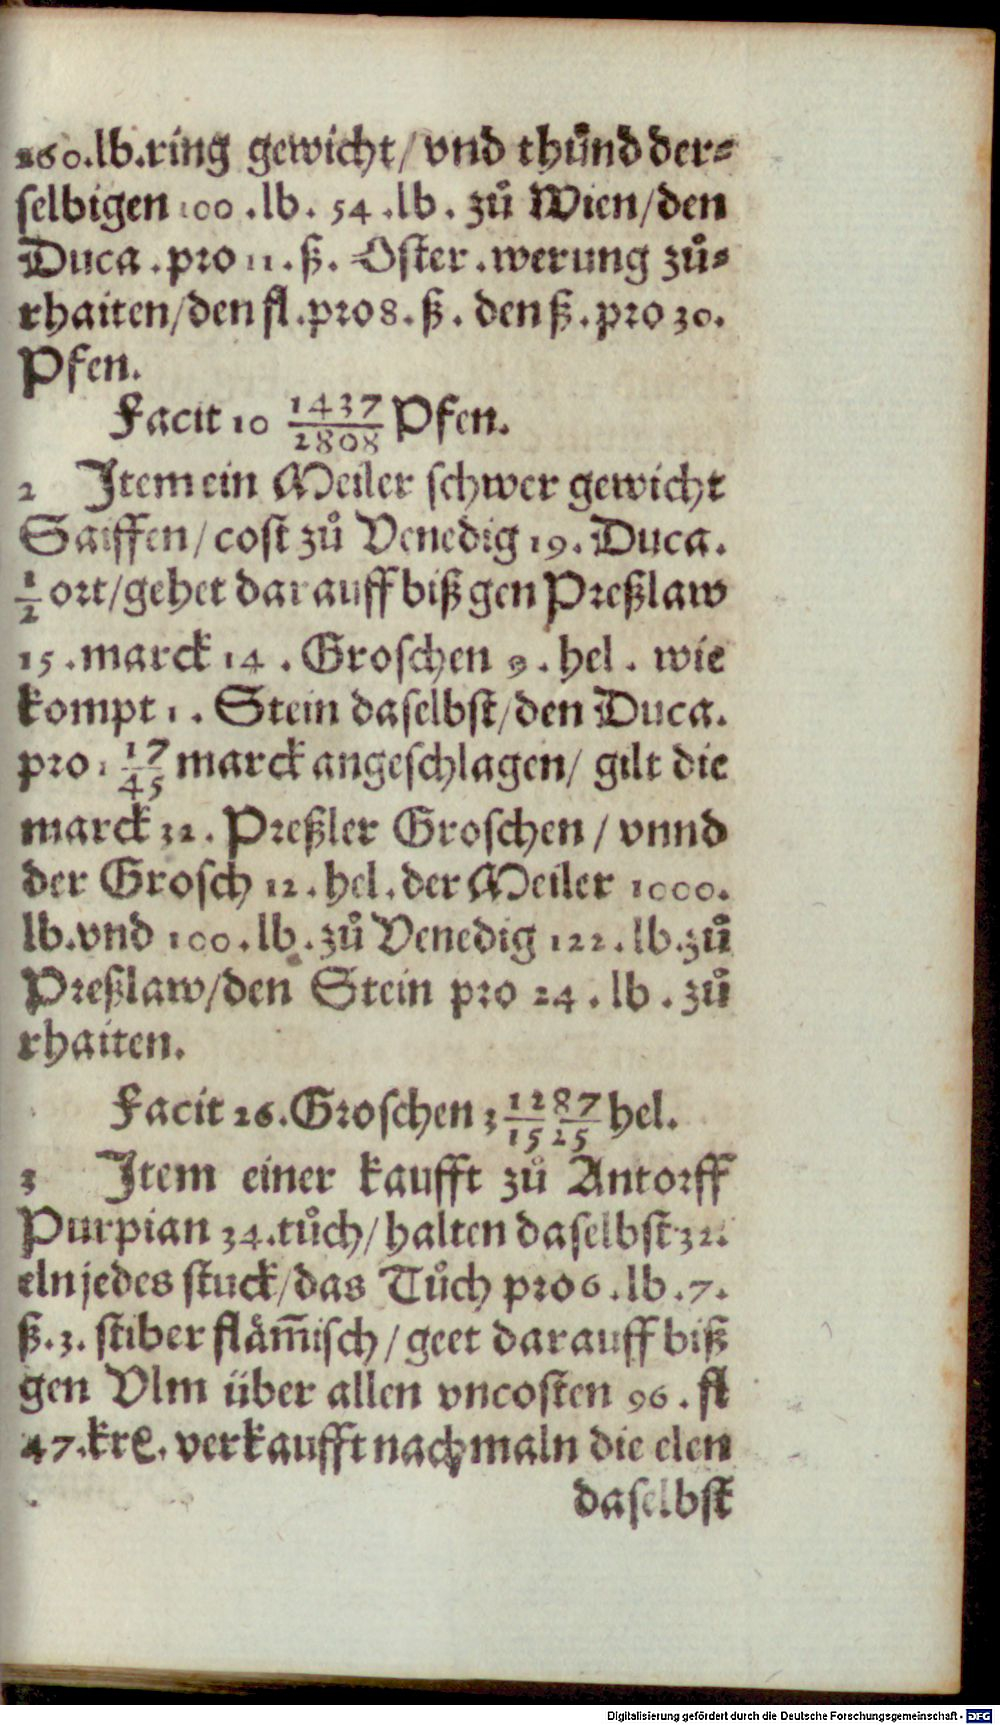 260.lb.ring gewicht/vnd thůnd der⸗
selbigen 100.lb. 54.lb. zů Wien/den
Duca.pro 11.ß. Oster.werung zů⸗
rhaiten/den fl.pro 8.ß. den ß.pro 30.
Pfen.
Facit 10 1437/2808 Pfen.
2 Item ein Meiler schwer gewicht
Saiffen/cost zů Venedig 19. Duca.
1/2 ort/gehet darauff biß gen Preßlaw
15.marck 14. Groschen 9.hel. wie
kompt 1. Stein daselbst/den Duca.
pro 1 17/45 marck angeschlagen/ gilt die
marck 32. Preßler Groschen/vnnd
der Grosch 12.hel.der Meiler 1000.
lb.vnd 100.lb.zů Venedig 122.lb.zů
Preßlaw/den Stein pro 24.lb. zů
rhaiten.
Facit 26.Groschen 3 1287/1525 hel.
3 Item einer kaufft zů Antorff
Purpian 34.tůch/halten daselbst 32.
eln jedes stuck/das Tůch pro 6.lb.7.
ß.3. stiber fläm̃isch/geet darauff biß
gen Vlm über allen vncosten 96.fl
47.krꝭ. verkaufft nachmaln die elen
daselbst
Digitalisierung gefördert durch die Deutsche Forschungsgemeinschaft - DFG